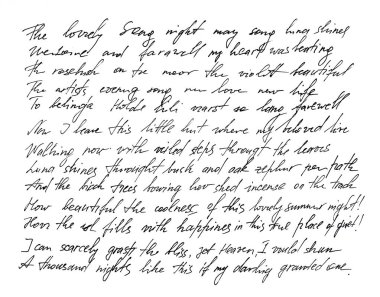 The lovely Song night may song luna shines
Welcome and farewell my heart was beating
The rosebush on the moor the violett beautiful
The artists evening song new love new life
To belinda Holde Lili warst so lang farewell
Now I leave this little hut where my beloved live
Walking now with veiled steps throught the leaves
Luna shines throught bush and oak zephur per path
And the birch trees bowing low shed incense on the track
How beautiful the coolness of this lovely summer night!
How the soul fills with happiness in this true place of quiet!
I can scarcely grasp the bliss, yet Heaven, I would shun
A thousand nights like this if my darling granted one.